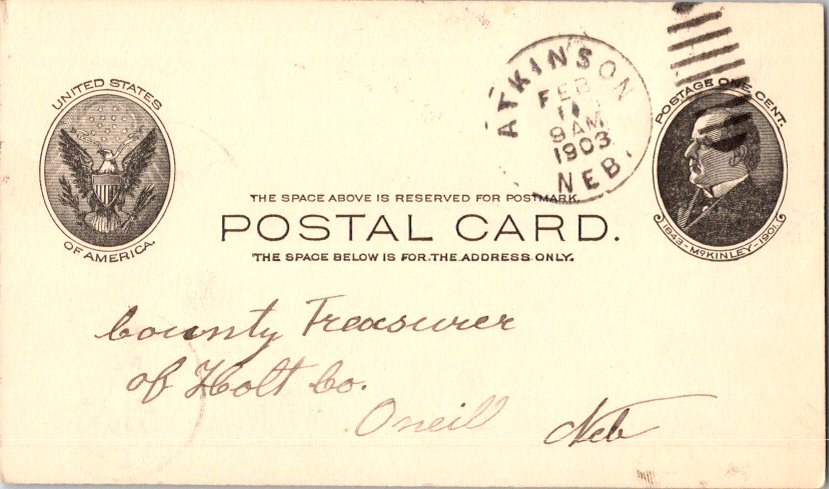 UNITED STATES
OF AMERICA.
ATKINSON
FEB
11
9 AM
1903
NEB.
POSTAGE ONE CENT.
1843-McKINLEY-1901.
THE SPACE ABOVE IS RESERVED FOR POSTMARK.
POSTAL CARD.
THE SPACE BELOW IS FOR THE ADDRESS ONLY.
County Treasurer
of Holt Co.
Oneill Neb